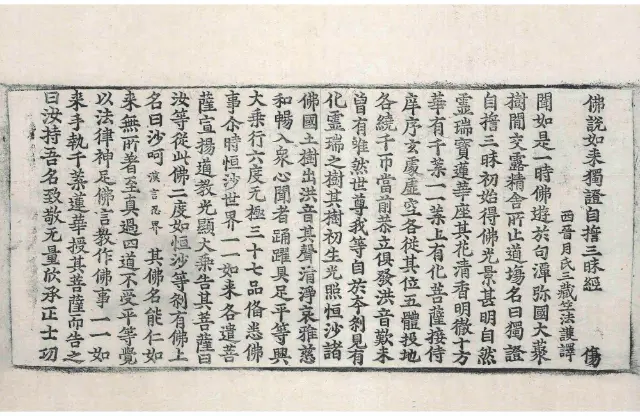 佛說如来獨證自誓三昧經 傷
西晉月氏三藏竺法護譯
聞如是一時佛遊於句潭弥國大藂
樹間交露精舍所止道塲名曰獨證
自誓三昧初始得佛光景甚明自然
靈瑞寶蓮華座其花清香明徹十方
華有千葉一一葉上有化菩薩接侍
庠序玄處虛空各從其位五體投地
各繞千帀當前恭立俱發洪音歎未
曾有雖然世尊我等自於本刹見有
化靈瑞之樹其樹初生光照恒沙諸
佛國土樹出洪音其聲清淨哀雅慈
和暢入衆心聞者踊躍具足平等興
大乗行六度无極三十七品俻悉佛
事尒時恒沙世界一一如来各遣菩
薩宣揚道教光顯大乗告其菩薩曰
汝等從此佛二度如恒沙等刹有佛上
名曰沙呵漢言忍界其佛名能仁如
来無所著至真過四道不受平等覺
以法律神足佛言教作佛事一一如
来手執千葉蓮華授其菩薩而告之
曰汝持吾名致敬无量欣承正士功